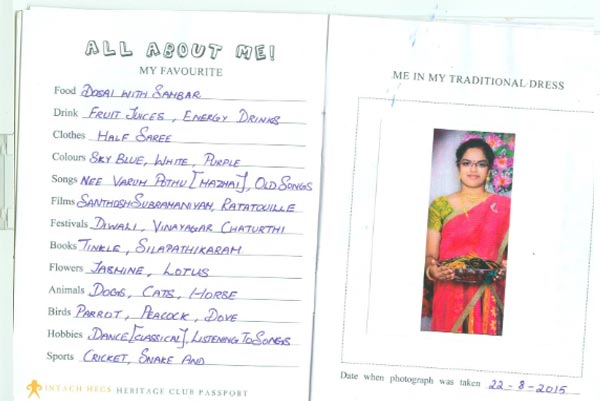 ALL ABOUT ME!
MY FAVOURITE
Food DOSAI WITH SAMBAR
Drink FRUIT JUICES, ENERGY DRINKS
Clothes HALF SAREE
Colours SKY BLUE, WHITE, PURPLE
Songs NEE VARUM POTHU [MAZHAI], OLD SONGS
Films SANTHOSH SUBRAMANIYAN, RATATOUILLE
Festivals DIWALI, VINAYAGAR CHATURTHI
Books TINKLE, SILAPATHIKARAM
Flowers JASMINE, LOTUS
Animals DOGS, CATS, HORSE
Birds PARROT, PEACOCK, DOVE
Hobbies DANCE [CLASSICAL], LISTENING TO SONGS
Sports CRICKET, SNAKE AND
INTACH HECS HERITAGE CLUB PASSPORT
ME IN MY TRADITIONAL DRESS
Date when photograph was taken 22-8-2015